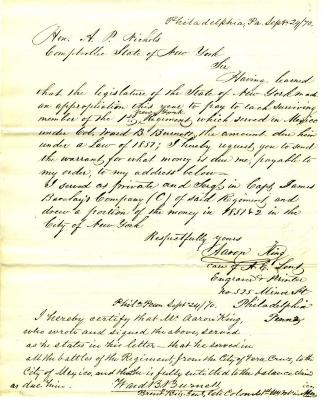 Philadelphia, Pa. Sept 24/70.
Hon. A. P. Nichols
Comptroller State of New York
Sir
Having learned
that the legislature of the State of New York made
an appropriation this year to pay to each surviving
member of the 1st New York Regiment, which served in Mexico
under Col. Ward B. Burnett, the amount due him
under a Law of 1851; I hereby request you to send
the warrant for what money is due me, payable to
my order, to my address below—
I served as private and Sergt. in Capt. James
Barclay's Company (C) of said Regiment and
drew a portion of the money in 1851 & 2 in the
City of New York
Respectfully yours
Aaron King
care of A. C.
Engraver & Printer
No. 525 Minor St
Philadelphia
Penna
Phila Penn Sept 24/70.
I hereby certify that Mr. Aaron King,
who wrote and signed the above, served
as he states in this letter— that he served in
all the battles of the Regiment from the City of Vera Cruz, to the
City of Mexico, and that he is fully entitled to the balance claimed
as due him. Ward B. Burnett